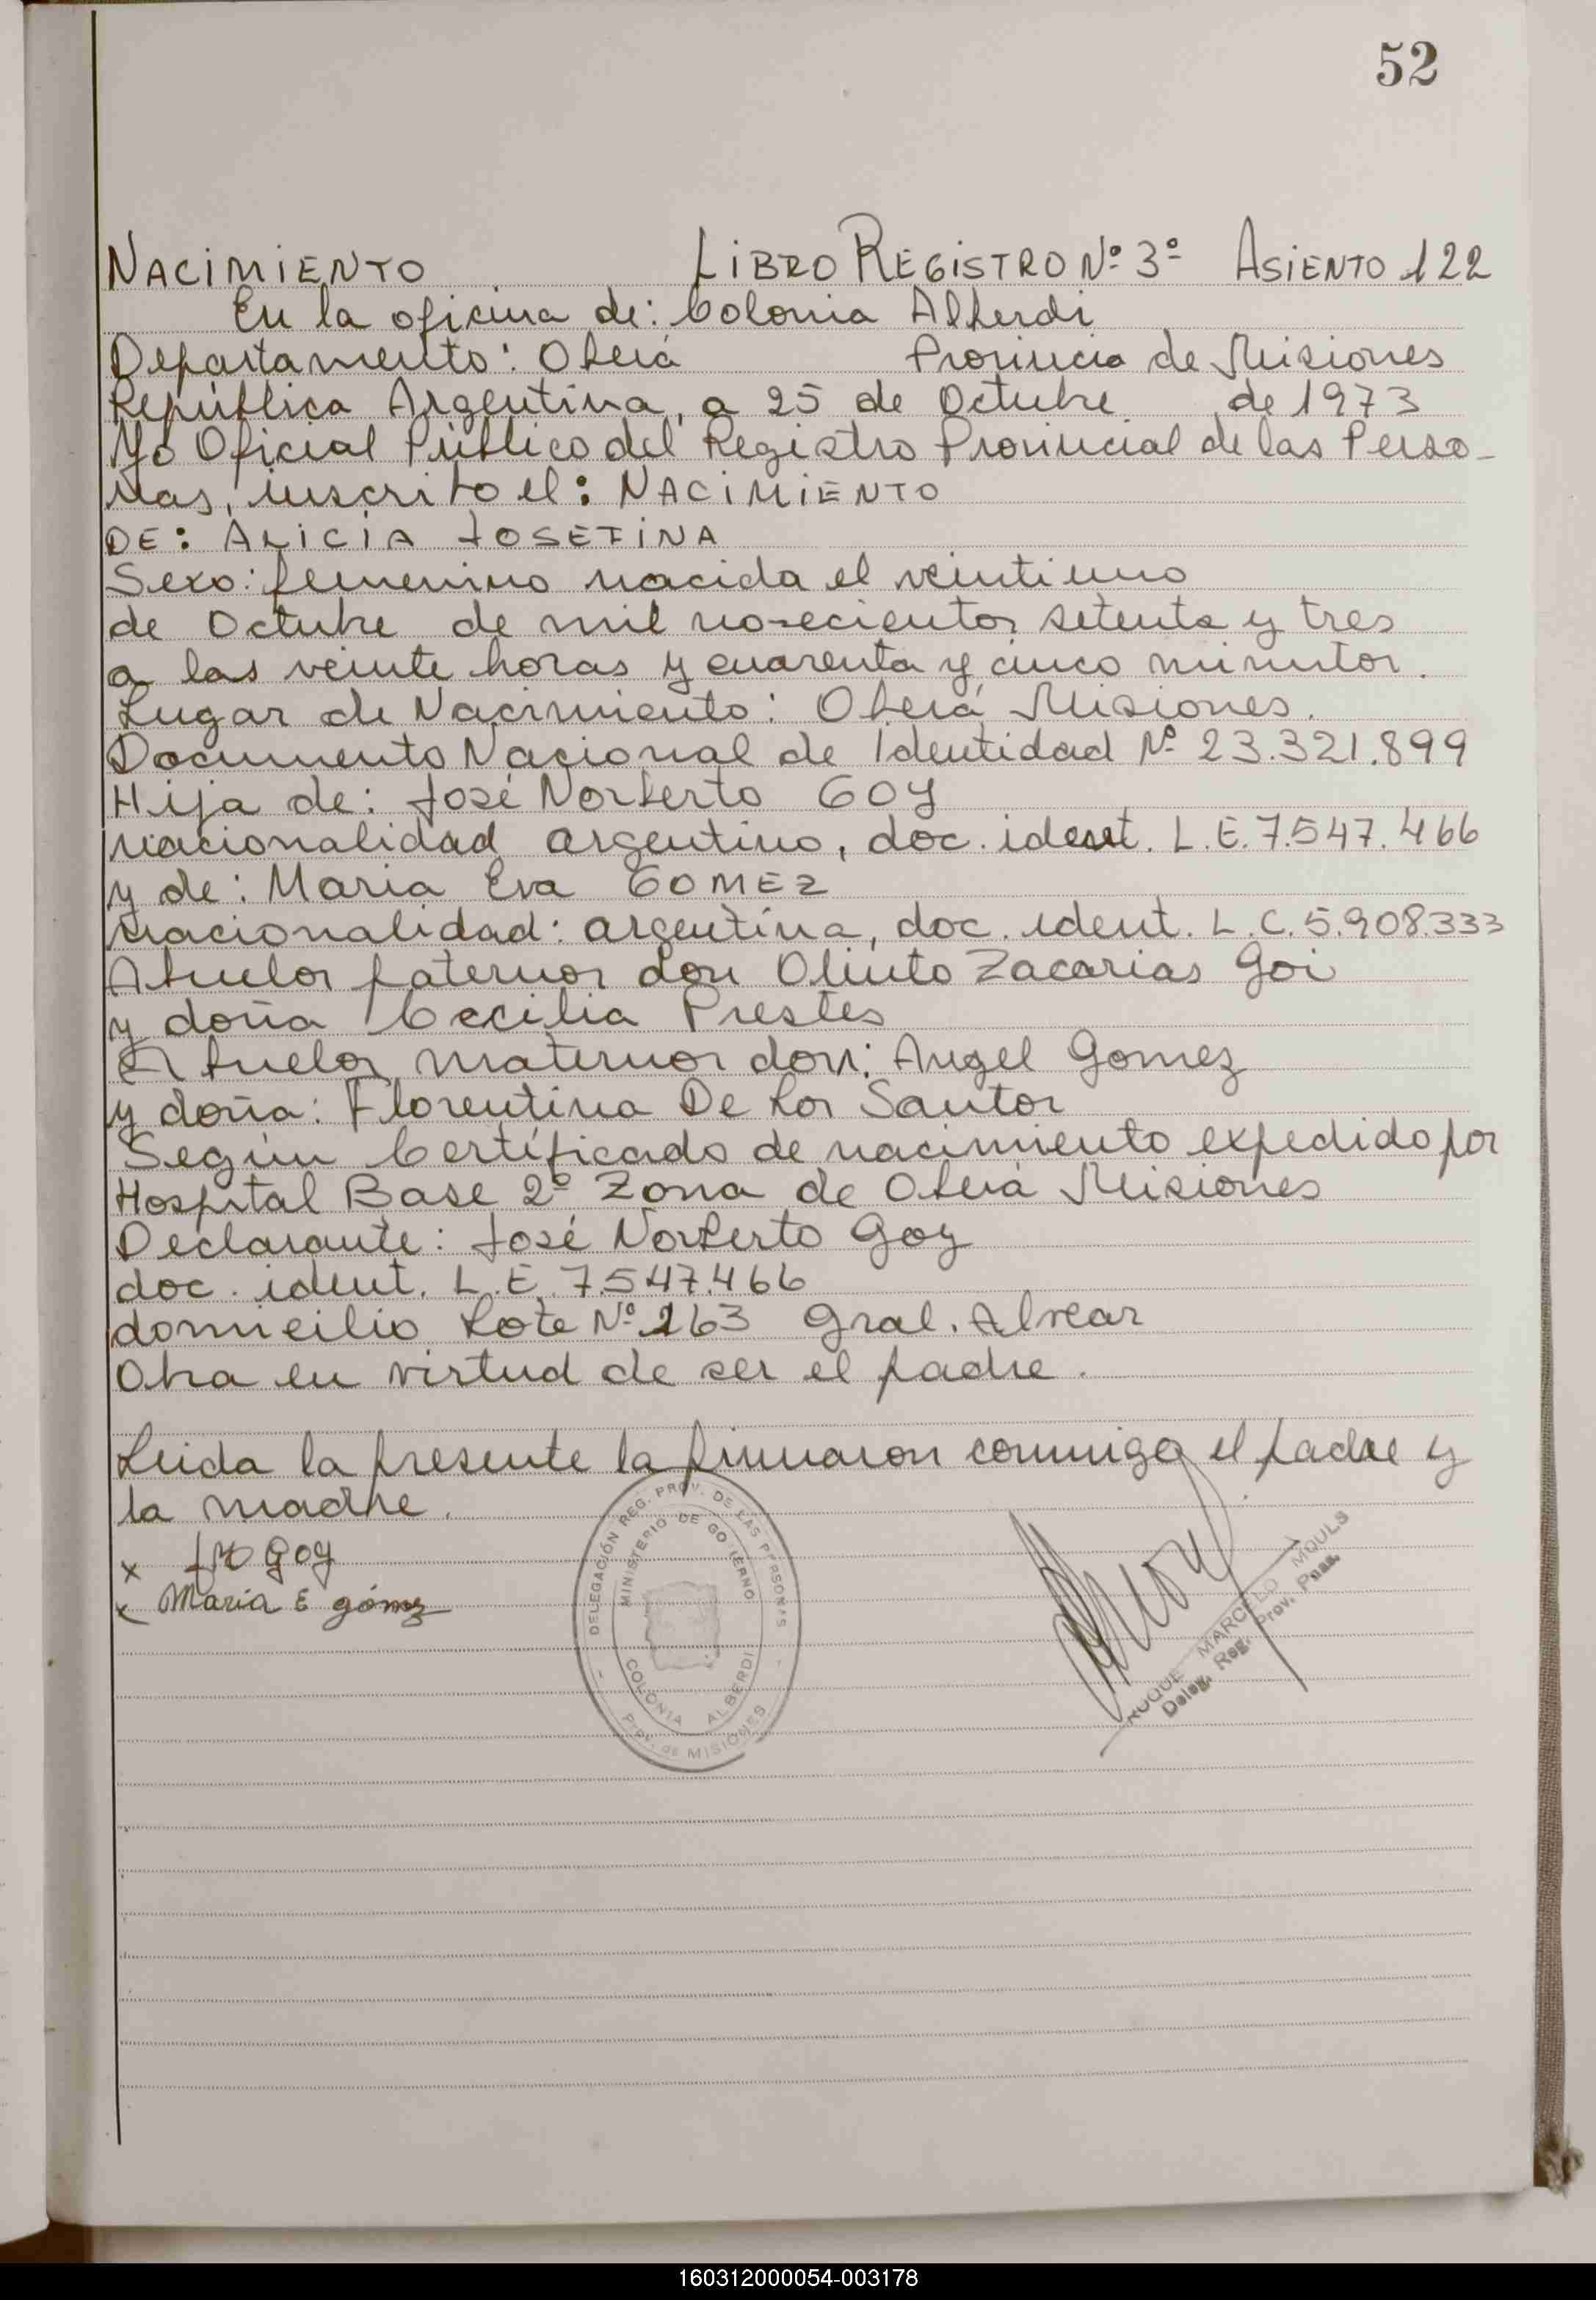 52
NACIMIENTO LIBRO REGISTRO Nº 3º ASIENTO 122
En la oficina de: Colonia Alberdi
Departamento: Oberá Provincia de Misiones
República Argentina, a 25 de Octubre de 1973
Yo Oficial Público del Registro Provincial de las Perso-
nas, inscribo el: NACIMIENTO
DE: ALICIA JOSEFINA
Sexo: femenino nacida el veintiuno
de Octubre de mil novecientos setenta y tres
a las veinte horas y cuarenta y cinco minutos.
Lugar de Nacimiento: Oberá, Misiones.
Documento Nacional de Identidad Nº 23.321.899
Hija de: José Norberto GOY
nacionalidad argentino, doc. ident. L.E. 7.547.466
y de: Maria Eva GOMEZ
nacionalidad: argentina, doc. ident. L.C. 5.908.333
Abuelos paternos don Olinto Zacarias Goi
y doña Cecilia Prestes
Abuelos maternos don: Angel Gomez
y doña: Florentina De Los Santos
Según Certificado de nacimiento expedido por
Hospital Base 2º Zona de Oberá Misiones
Declarante: José Norberto Goy
doc. ident. L.E. 7.547.466
domicilio Lote Nº 163 Gral. Alvear
Obra en virtud de ser el padre.
Leida la presente la firmaron conmigo el padre y
la madre.
x Goy
x Maria E gómez
DELEGACIÓN REG. PROV. DE LAS PERSONAS
MINISTERIO DE GOBIERNO
COLONIA ALBERDI
PROV. de MISIONES
ROQUE MARCELO MOULS
Deleg. Reg. Prov. Pnas.
160312000054-003178